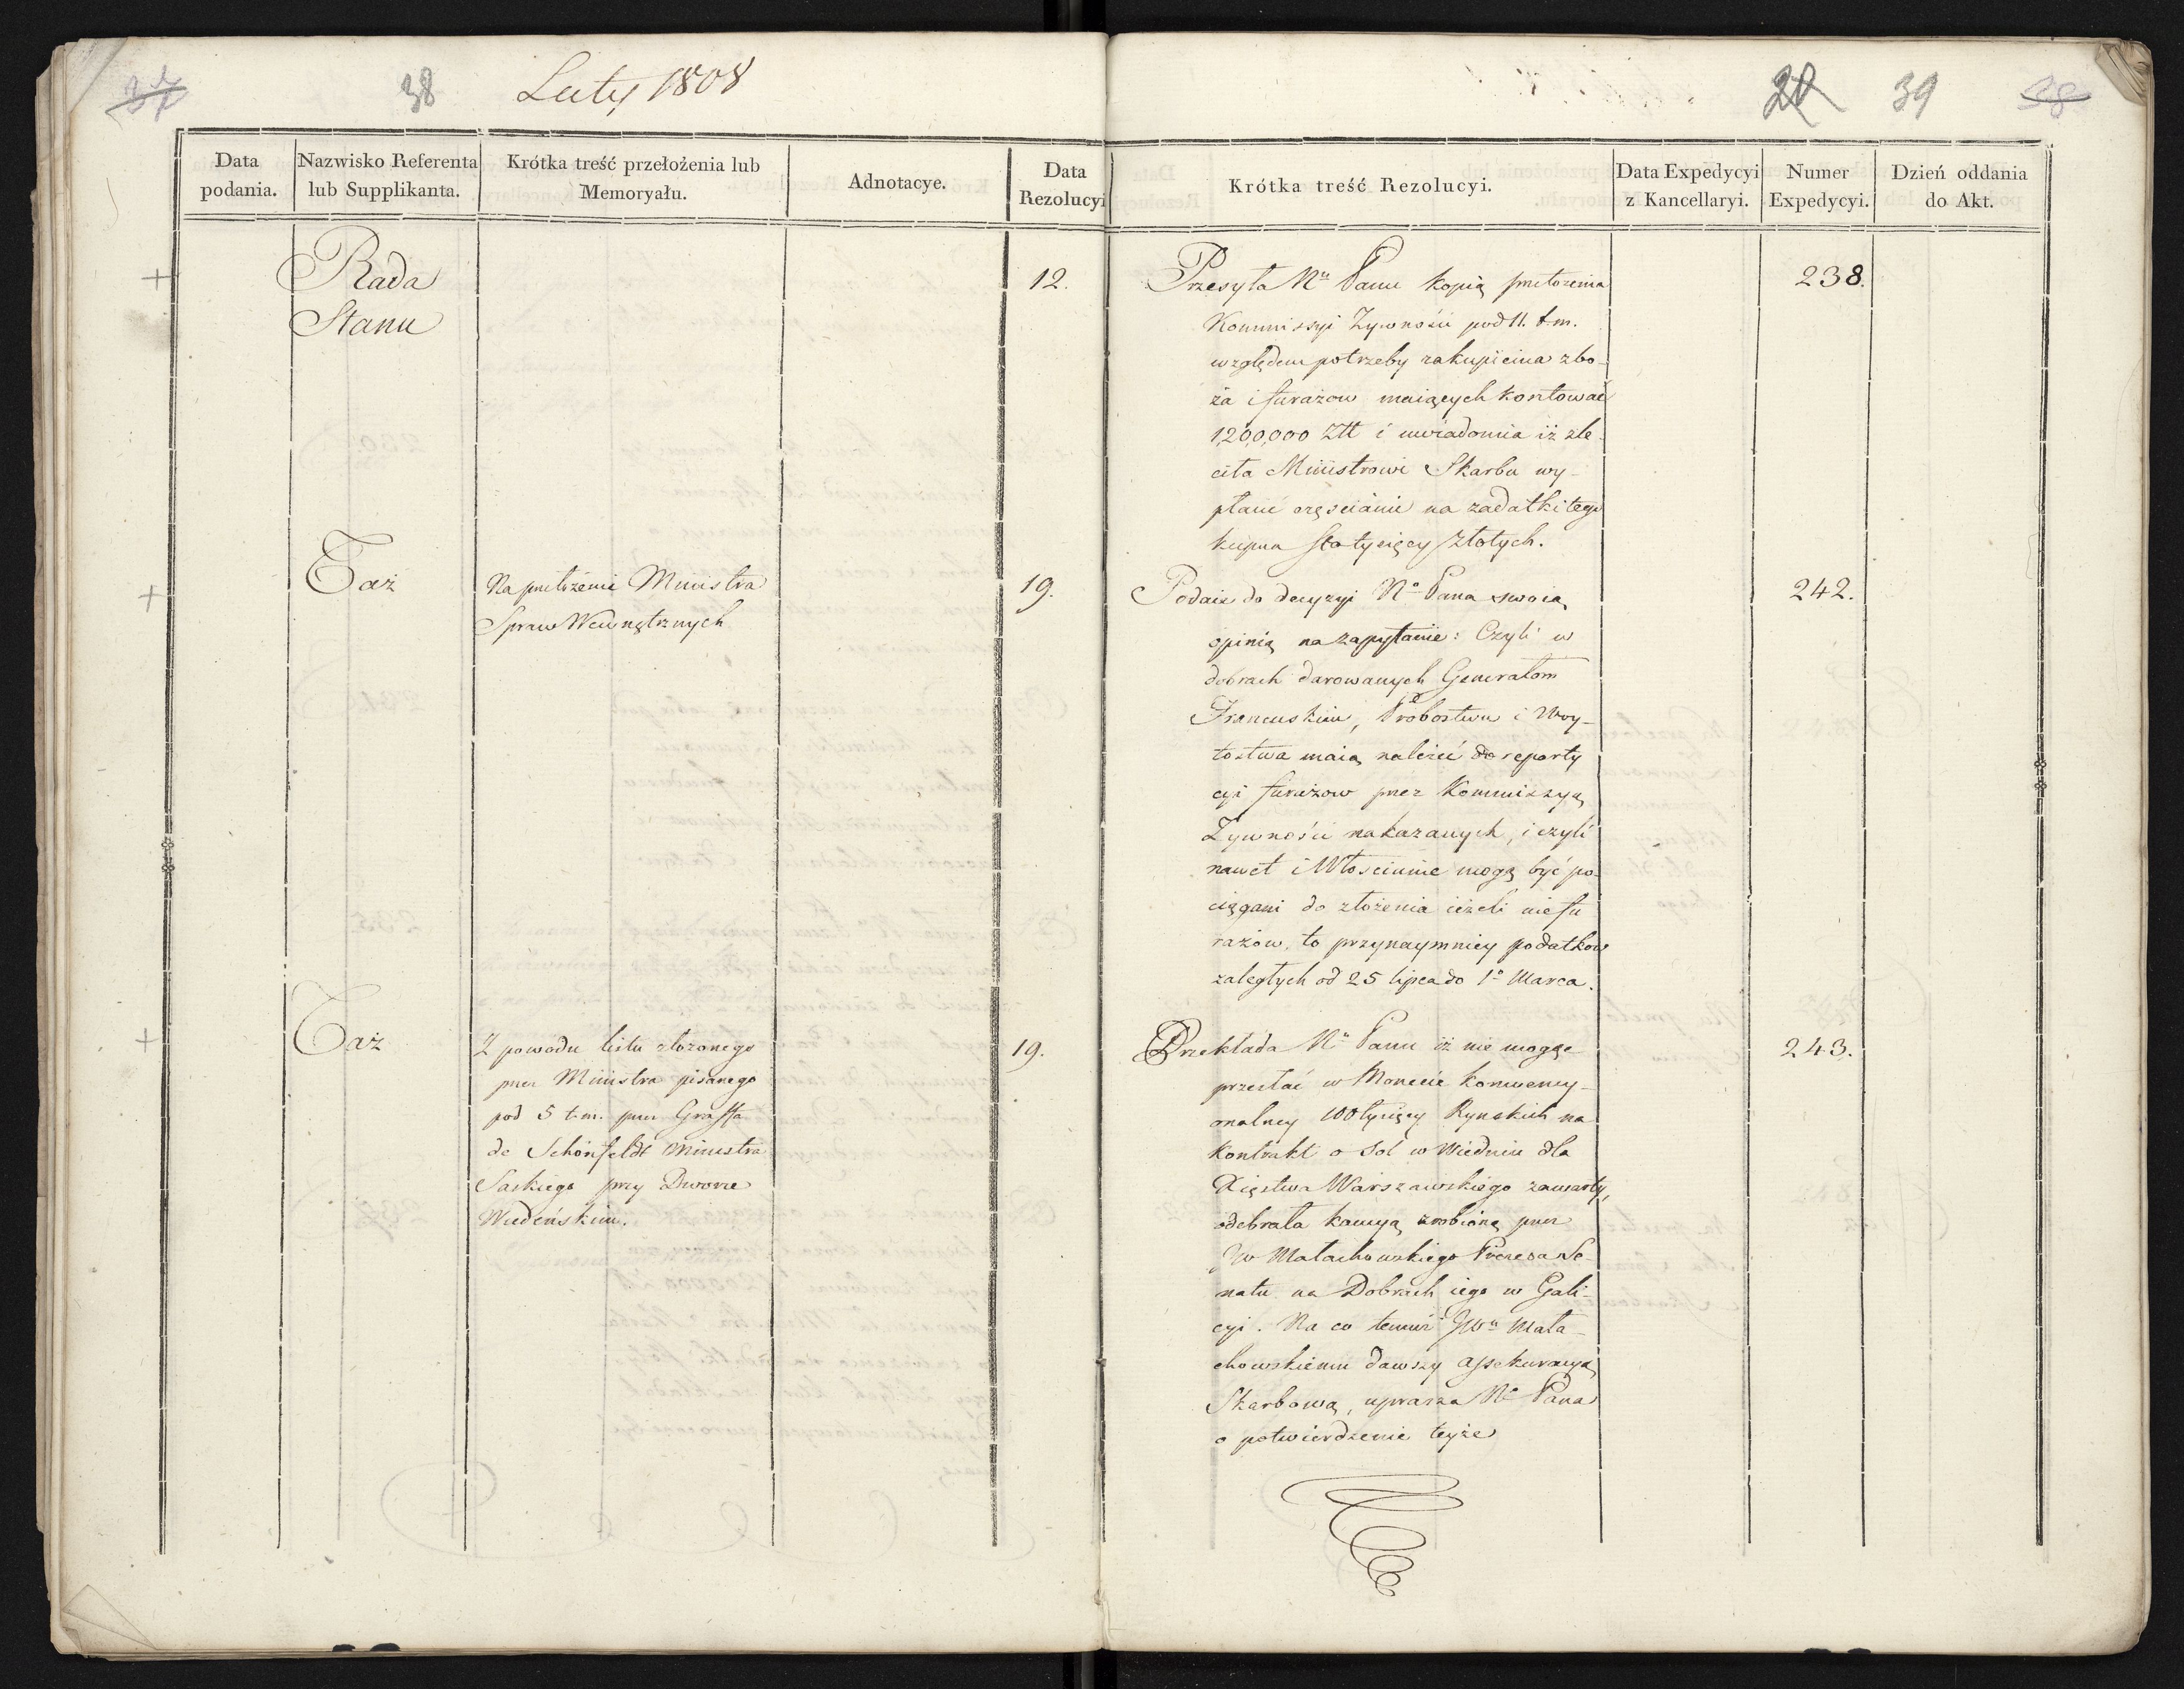 37
38
Luty 1808
20
39
38
Data podania.
Nazwisko Referenta lub Supplikanta.
Krótka treść przełożenia lub Memoryału.
Adnotacye.
Data Rezolucyi
Krótka treść Rezolucyi.
Data Expedycyi z Kancellaryi.
Numer Expedycyi.
Dzień oddania do Akt.
+
Rada
Stanu
12.
Przesyła Nu Panu kopią przełożenia
Kommissyi Zywności pod 11. t.m.
względem potrzeby zakupienia zbo-
ża i furażow maiących kosztować
1,200,000 Ztt i uwiadomia iż zle-
ciła Ministrowi Skarbu wy-
płacić częściami na zadatki tego
kupna sto tysięcy złotych.
238.
+
Taż
Na przełożenie Ministra
Spraw Wewnętrznych
19.
Podaie do decyzyi No Pana swoią
opinią na zapytanie: Czyli w
dobrach darowanych Generałom
Francuskim, Probostwa i Woy-
tostwa maią należeć do reparty
cyi furażow przez Kommissyą
Zywności nakazanych, i czyli
nawet i Włościanie mogą być po-
ciągani do złożenia ieżeli nie fu
rażow, to przynaymniey podatkow
zaległych od 25 lipca do 1o Marca.
242.
+
Taż
Z powodu listu złożonego
przez Ministra pisanego
pod 5 t.m. przez Graffa
de Schönfeldt Ministra
Saskiego przy Dworze
Wiedeńskim.
19.
Przekłada Nu Panu iż nie mogąc
przesłać w Monecie konwency-
onalney 100 tysięcy Ryńskich na
kontrakt o Sol w Wiedniu dla
Xięstwa Warszawskiego zawarty,
odebrała kaucyą zrobioną przez
JW Małachowskiego Prezesa Se-
natu na Dobrach iego w Gali-
cyi. Na co temuż JWu Mała-
chowskiemu dawszy assekuracyą
Skarbową, uprasza No Pana
o potwierdzenie teyże
243.